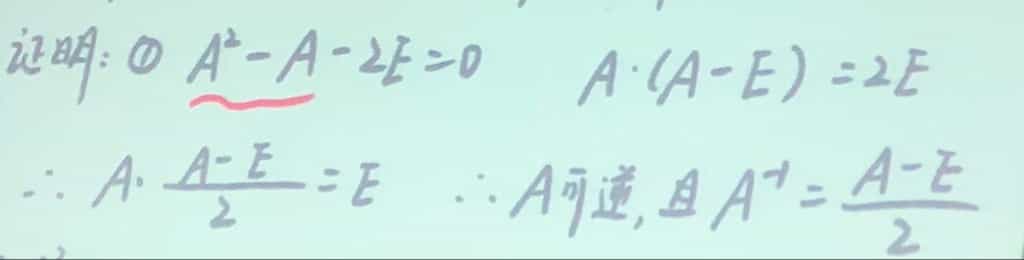 证明: ① A²-A-2E=0 A·(A-E)=2E
∴ A·\frac{A-E}{2}=E ∴ A可逆, 且 A⁻¹=\frac{A-E}{2}